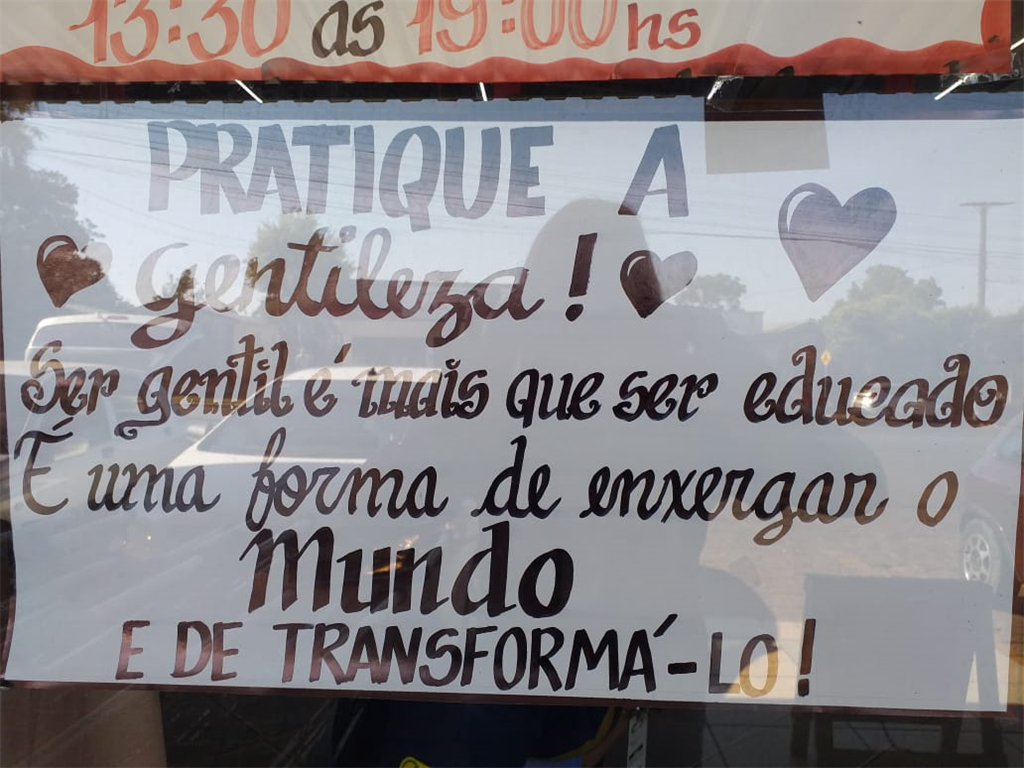 13:30 às 19:00hs
PRATIQUE A
gentileza!
Ser gentil é mais que ser educado
É uma forma de enxergar o
Mundo
E DE TRANSFORMÁ-LO!